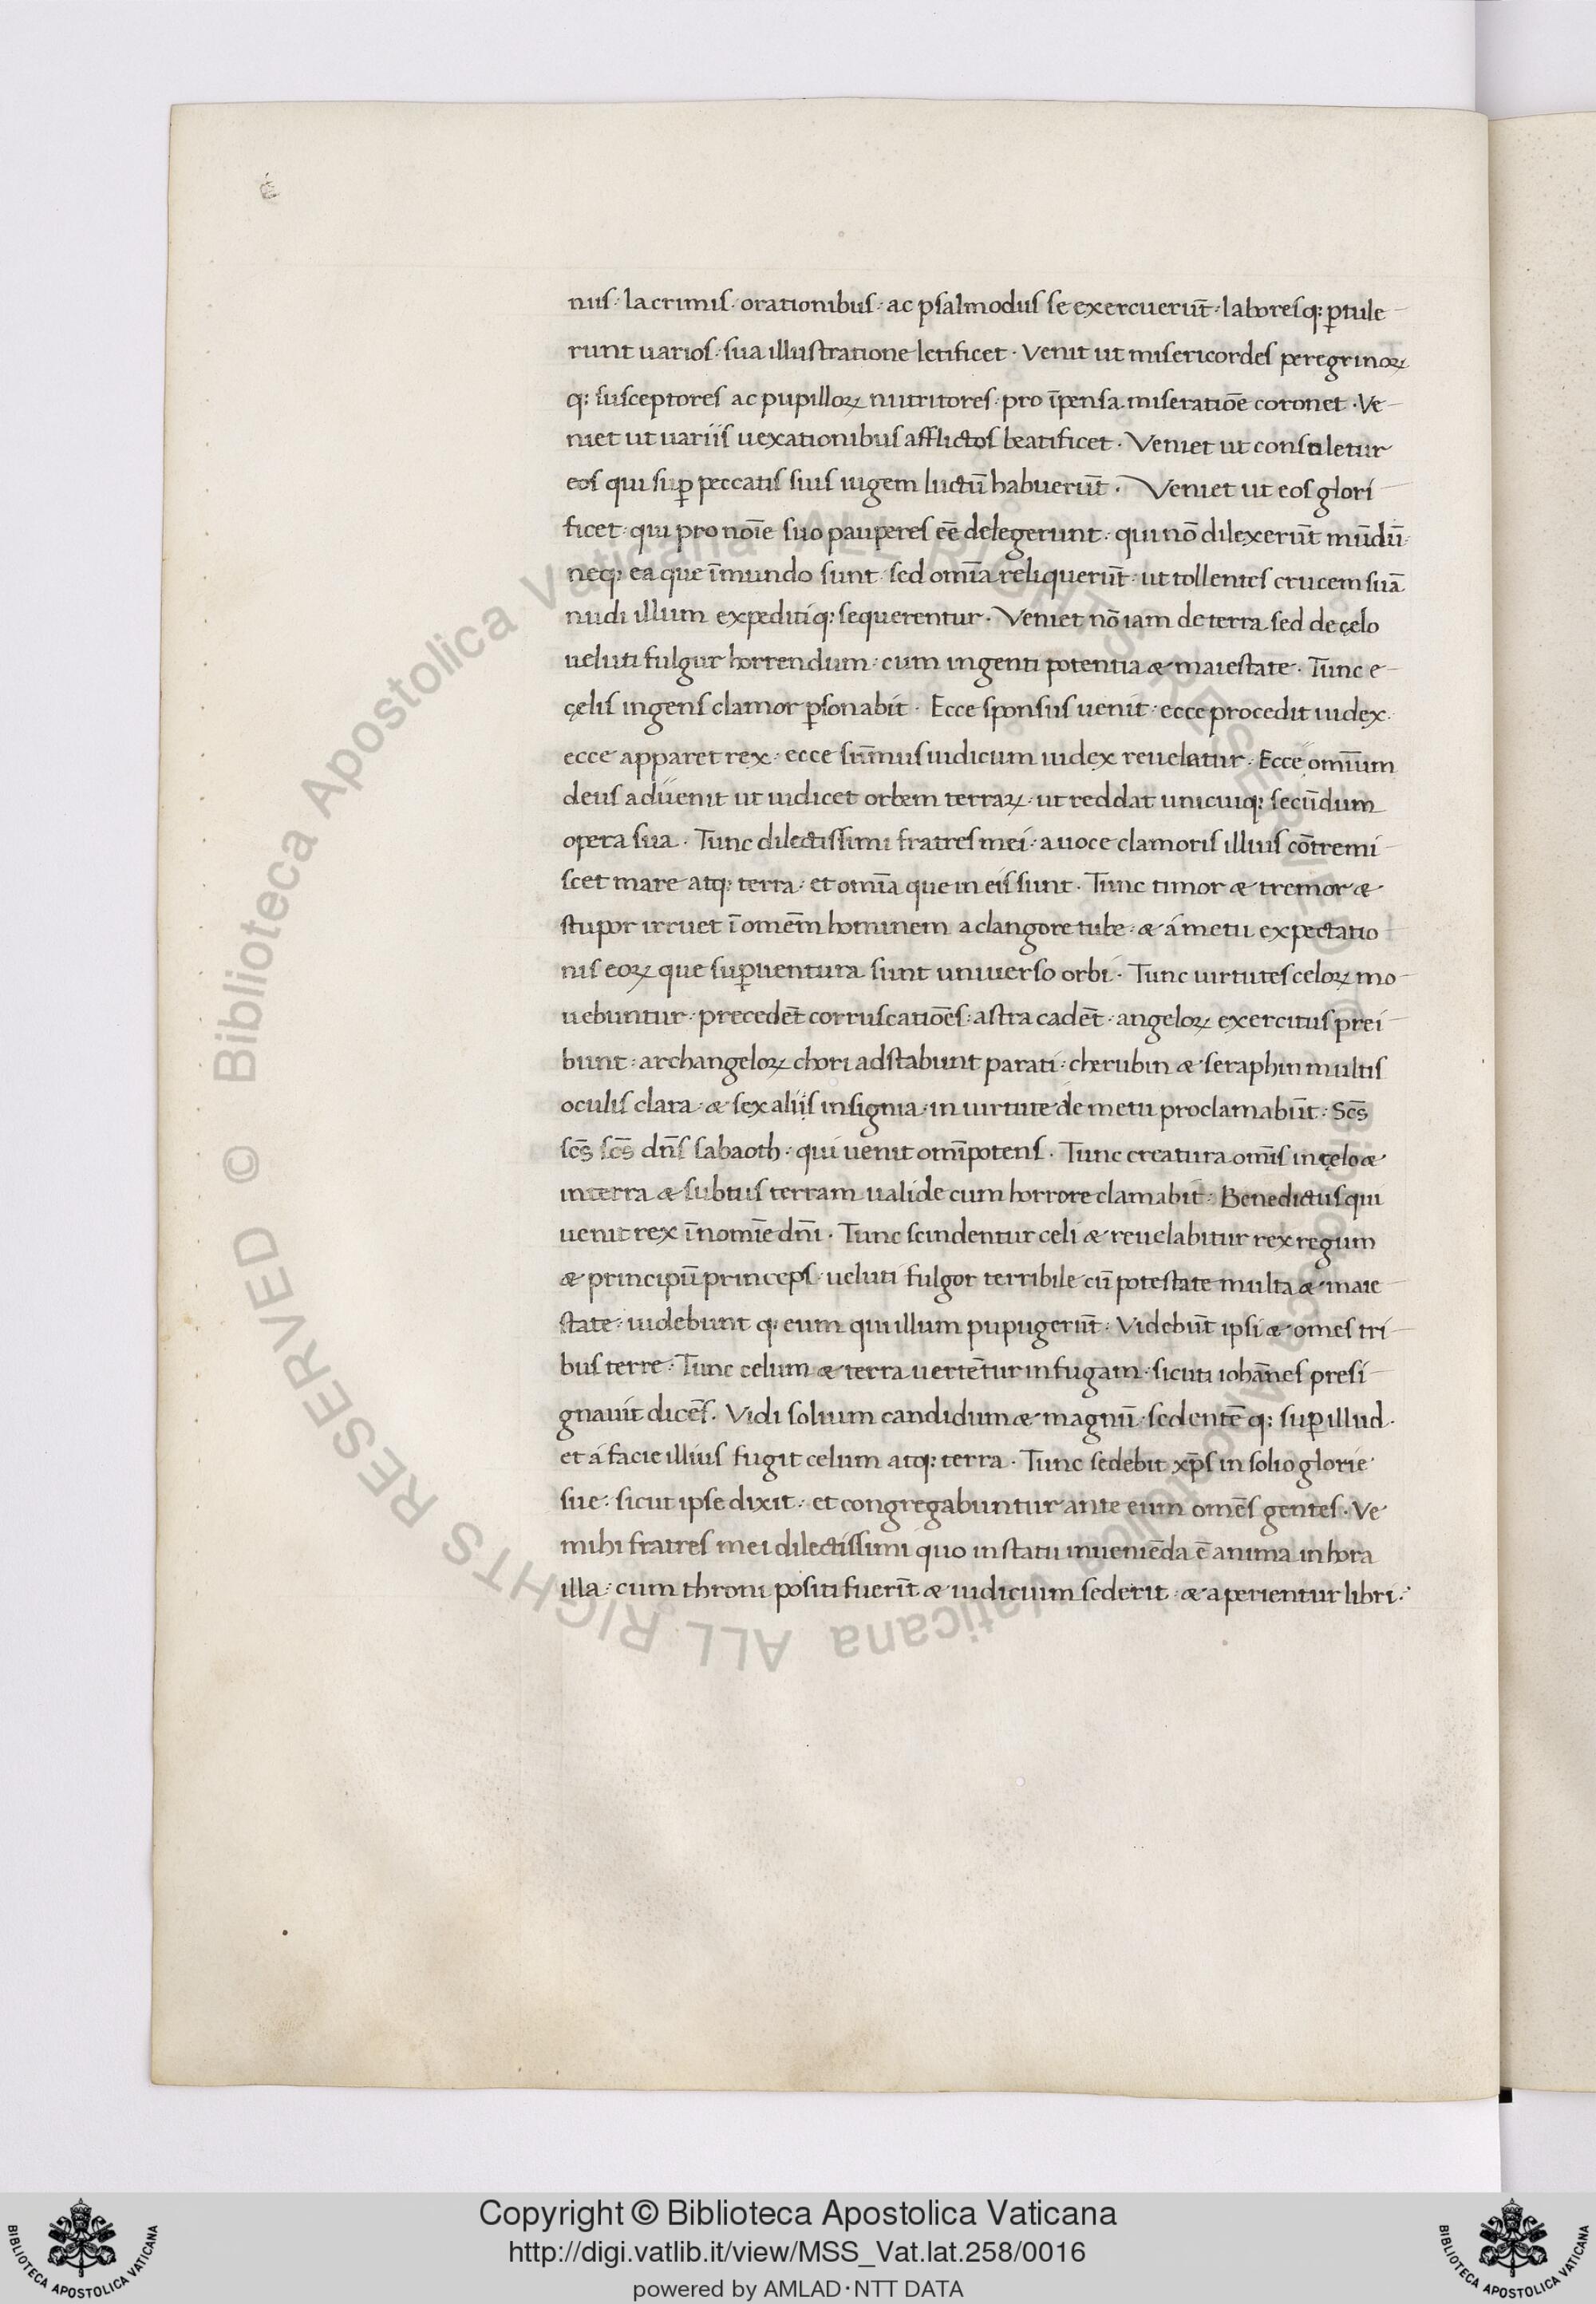 niis · lacrimis · orationibus · ac psalmodiis se exercuerūt · laboresq; ꝑtule
runt uarios · sua illustratione letificet · Venit ut misericordes peregrinoꝝ
q; susceptores ac pupilloꝝ nutritores · pro īpensa miseratiōe coronet · Ve
niet ut uariis uexationibus afflictos beatificet · Veniet ut consoletur
eos qui suꝑ peccatis suis iugem luctū habuerūt · Veniet ut eos glori
ficet · qui pro noīe suo pauperes eē delegerunt · qui nō dilexerūt mūdū ·
neq; ea que ī mundo sunt · sed omīa reliquerūt · ut tollentes crucem suā
nudi illum expeditiq; sequerentur · Veniet nō iam de terra sed de cęlo
ueluti fulgur horrendum · cum ingenti potentia & maiestate · Tunc e
cęlis ingens clamor ꝑsonabit · Ecce sponsus uenit · ecce procedit iudex ·
ecce apparet rex · ecce sum̄mus iudicum iudex reuelatur · Ecce omīum
deus aduenit ut iudicet orbem terraꝝ · ut reddat unicuiq; secūdum
opera sua · Tunc dilectissimi fratres mei · a uoce clamoris illius cōtremi
scet mare atq; terra · et omīa que in eis sunt · Tunc timor & tremor &
stupor irruet ī omēm hominem a clangore tube · & á metu expectatio
nis eoꝝ que suꝑuentura sunt uniuerso orbi · Tunc uirtutes celoꝝ mo
uebuntur · precedēt corruscatiōes · astra cadēt · angeloꝝ exercitus prei
bunt · archangeloꝝ chori adstabunt parati · cherubin & seraphin multis
oculis clara · & sex aliis insignia · in uirtute de metu proclamabūt · Scs̄
scs̄ scs̄ dn̄s sabaoth · qui uenit omīpotens · Tunc creatura omīs in cęlo &
in terra & subtus terram ualide cum horrore clamabit · Benedictus qui
uenit rex ī nomīe dn̄i · Tunc scindentur celi & reuelabitur rex regum
& principū princeps · ueluti fulgor terribile cū potestate multa & maie
state · uidebunt q; eum qui illum pupugerūt · Videbūt ipsi & omes tri
bus terre · Tunc celum & terra uertētur in fugam · sicuti iohān̄es presi
gnauit dicēs · Vidi solium candidum & magnū · sedentē q; suꝑ illud ·
et á facie illius fugit celum atq; terra · Tunc sedebit xp̄s in solio glorie
sue · sicut ipse dixit · et congregabuntur ante eum omēs gentes · Ve
mihi fratres mei dilectissimi quo in statu inueniēda ē anima in hora
illa · cum throni positi fuerīt & iudicium sederit · & aperientur libri ·
© Biblioteca Apostolica Vaticana ALL RIGHTS RESERVED © Biblioteca Apostolica Vaticana ALL RIGHTS RESERVED
Copyright © Biblioteca Apostolica Vaticana
http://digi.vatlib.it/view/MSS_Vat.lat.258/0016
powered by AMLAD · NTT DATA
BIBLIOTECA APOSTOLICA VATICANA
BIBLIOTECA APOSTOLICA VATICANA